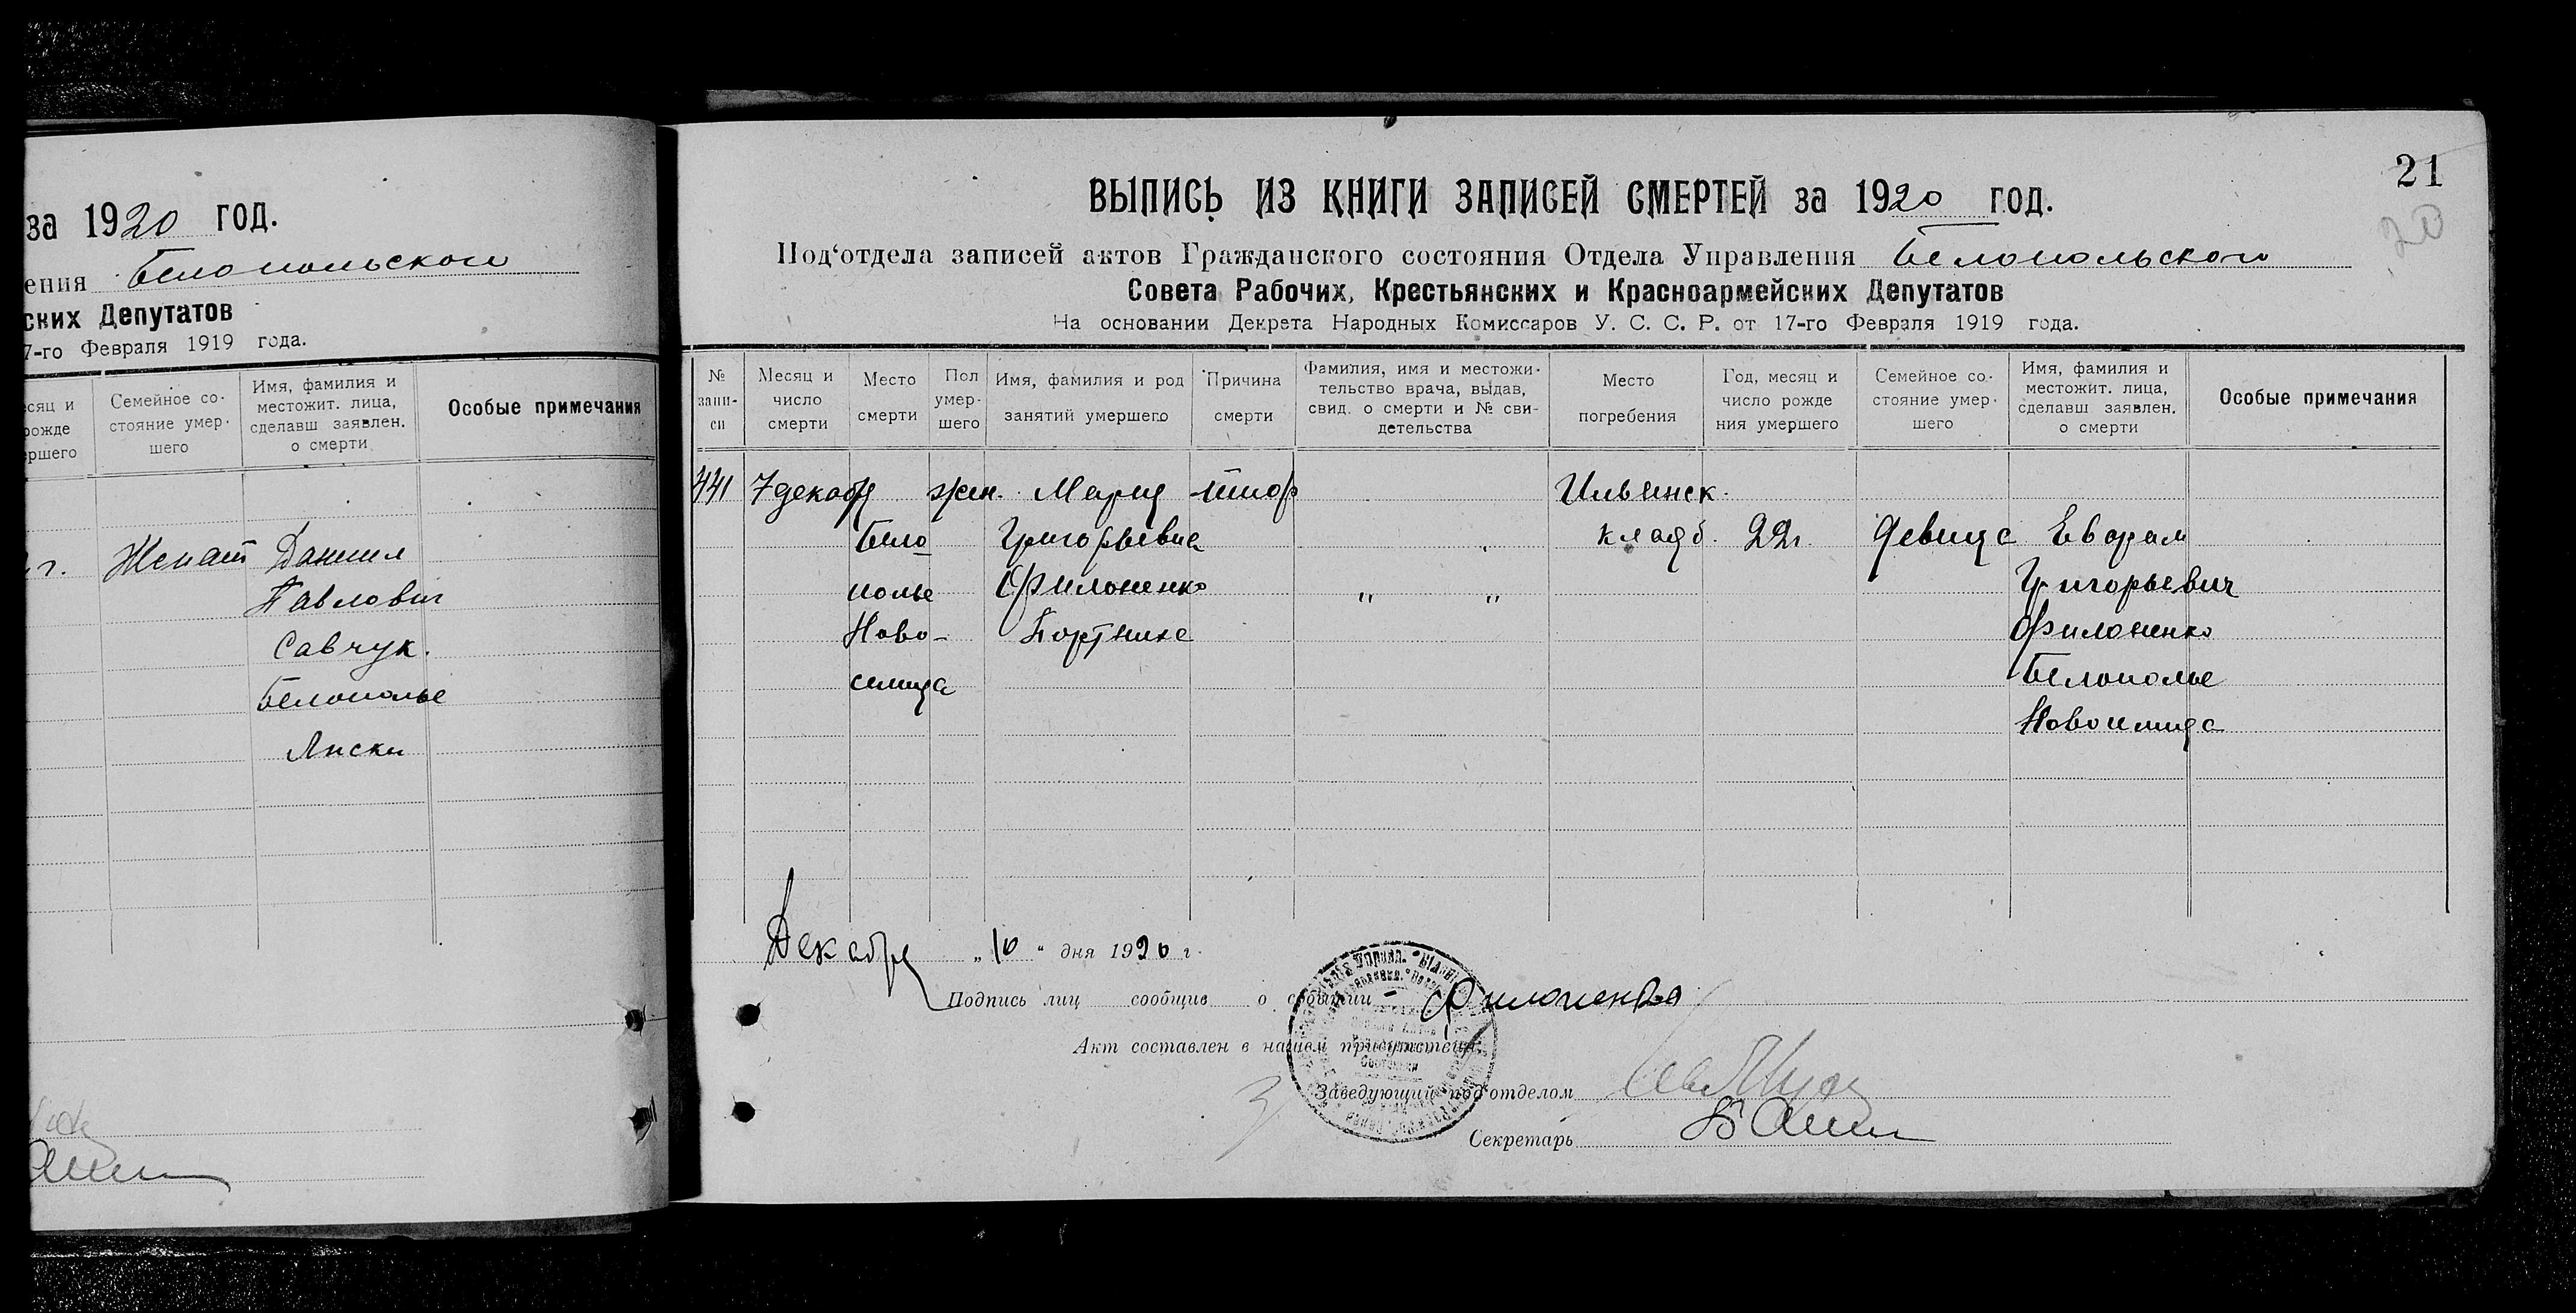 за 1920 год.
ения Белопольского
ских Депутатов
7-го Февраля 1919 года.
есяц и
рожде
ршего
Семейное со-
стояние умер-
шего
Имя, фамилия и
местожит. лица,
сделавш заявлен.
о смерти
Особые примечания
г.
Женат
Даниил
Павлович
Савчук.
Белополье
Лиски
21
20
ВЫПИСЬ ИЗ КНИГИ ЗАПИСЕЙ СМЕРТЕЙ за 1920 год.
Под'отдела записей актов Гражданского состояния Отдела Управления Белопольского
Совета Рабочих, Крестьянских и Красноармейских Депутатов
На основании Декрета Народных Комиссаров У. С. С. Р. от 17-го Февраля 1919 года.
№
запи-
си
Месяц и
число
смерти
Место
смерти
Пол
умер-
шего
Имя, фамилия и род
занятий умершего
Причина
смерти
Фамилия, имя и местожи-
тельство врача, выдав,
свид. о смерти и № сви-
детельства
Место
погребения
Год, месяц и
число рожде
ния умершего
Семейное со-
стояние умер-
шего
Имя, фамилия и
местожит. лица,
сделавш заявлен.
о смерти
Особые примечания
441
7 декабр
Бело
полье
Ново-
селица
жен.
Мария
Григорьевна
Филоненко
Портниха
тиф
" "
Ильинск.
кладб.
22 г.
девица
Евграм
Григорьевич
Филоненко
Белополье
Новоселица
Декабря „10“ дня 1920 г.
Подпись лиц сообщив о событии - Филоненко
Акт составлен в нашем присутствии:
Заведующий под'отделом
Секретарь